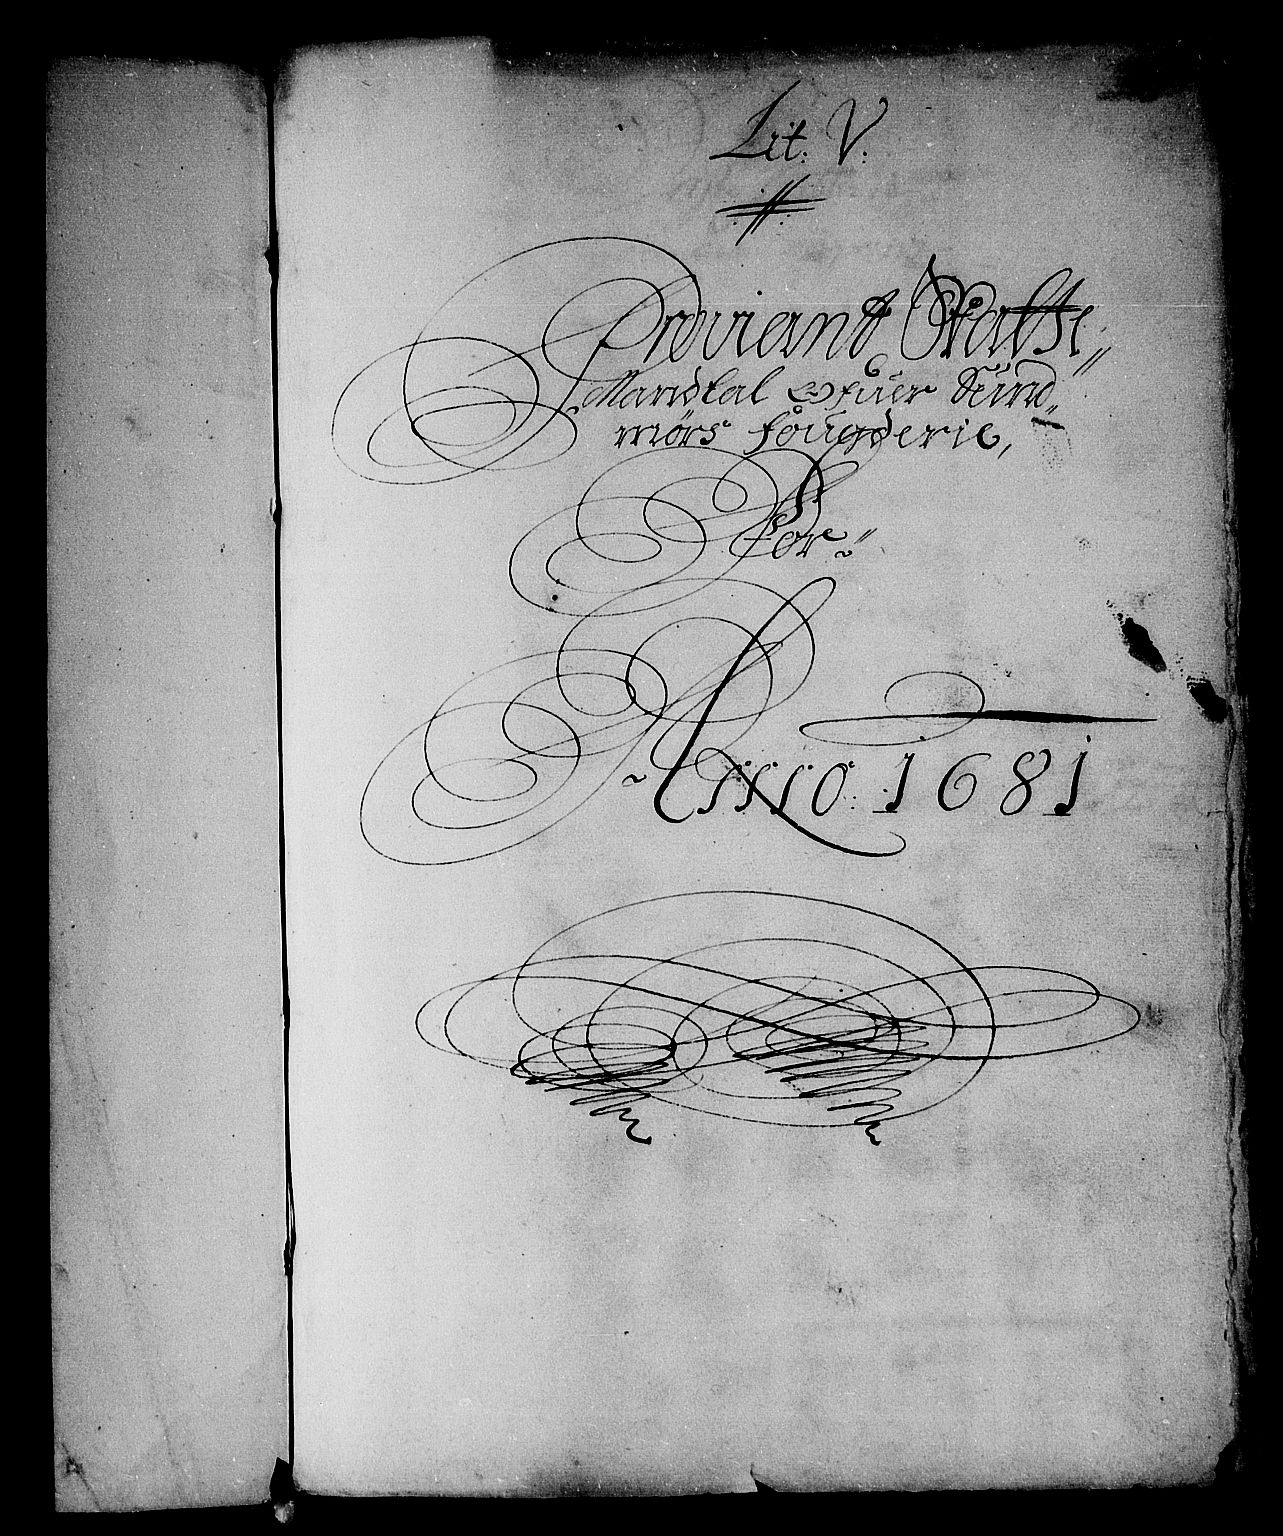 Lit: V.
Proviant Skatte
Mandtal ofuer Sund-
mörs fougderie,
For
Anno 1681